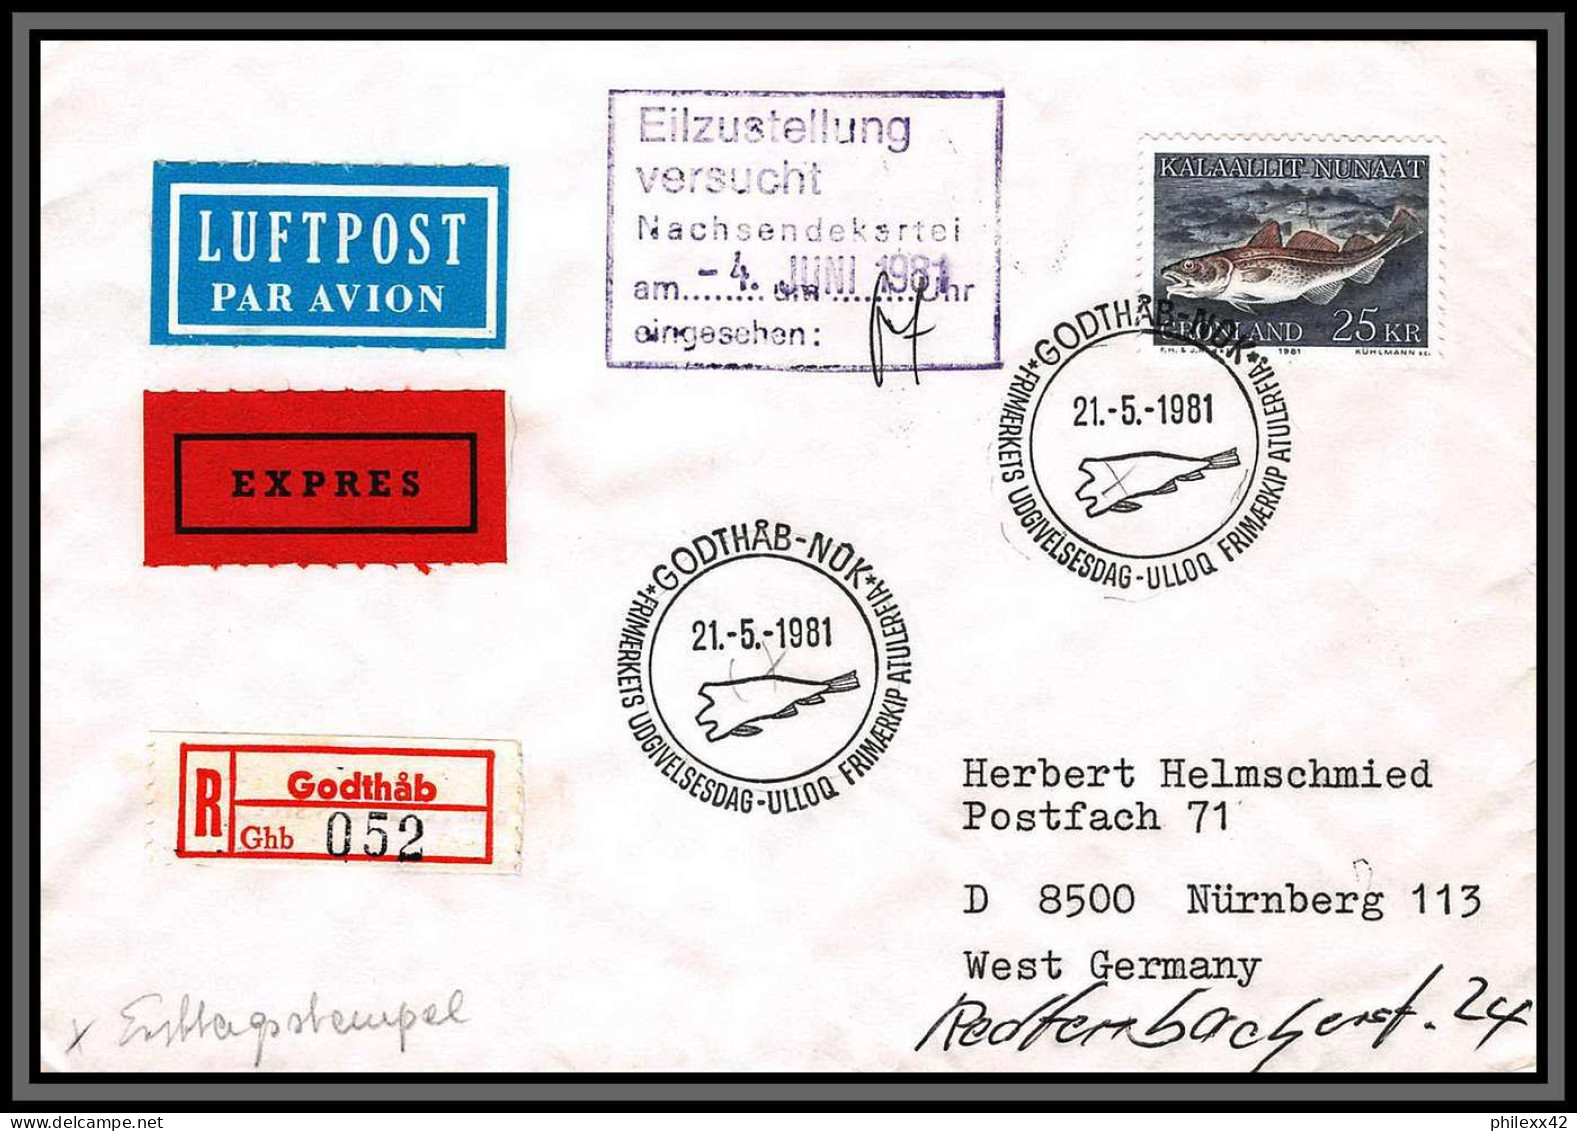 Eilzustellung
versucht
Nachsendekartei
- 4. JUNI 1981
am........um........Uhr
eingesehen:
KALAALLIT NUNAAT
GRØNLAND 25 KR
1981 KÜHLMANN SC.
LUFTPOST
PAR AVION
EXPRES
*GODTHÅB-NÛK*
21.-5.-1981
FRIMÆRKETS UDGIVELSESDAG-ULLOQ FRIMÆRKIP ATULERFIA
*GODTHÅB-NÛK*
21.-5.-1981
FRIMÆRKETS UDGIVELSESDAG-ULLOQ FRIMÆRKIP ATULERFIA
R Godthåb
Ghb 052
Herbert Helmschmied
Postfach 71
D 8500 Nürnberg 113
West Germany
Redtenbacherst. 24
x Ersttagsstempel
philexx42